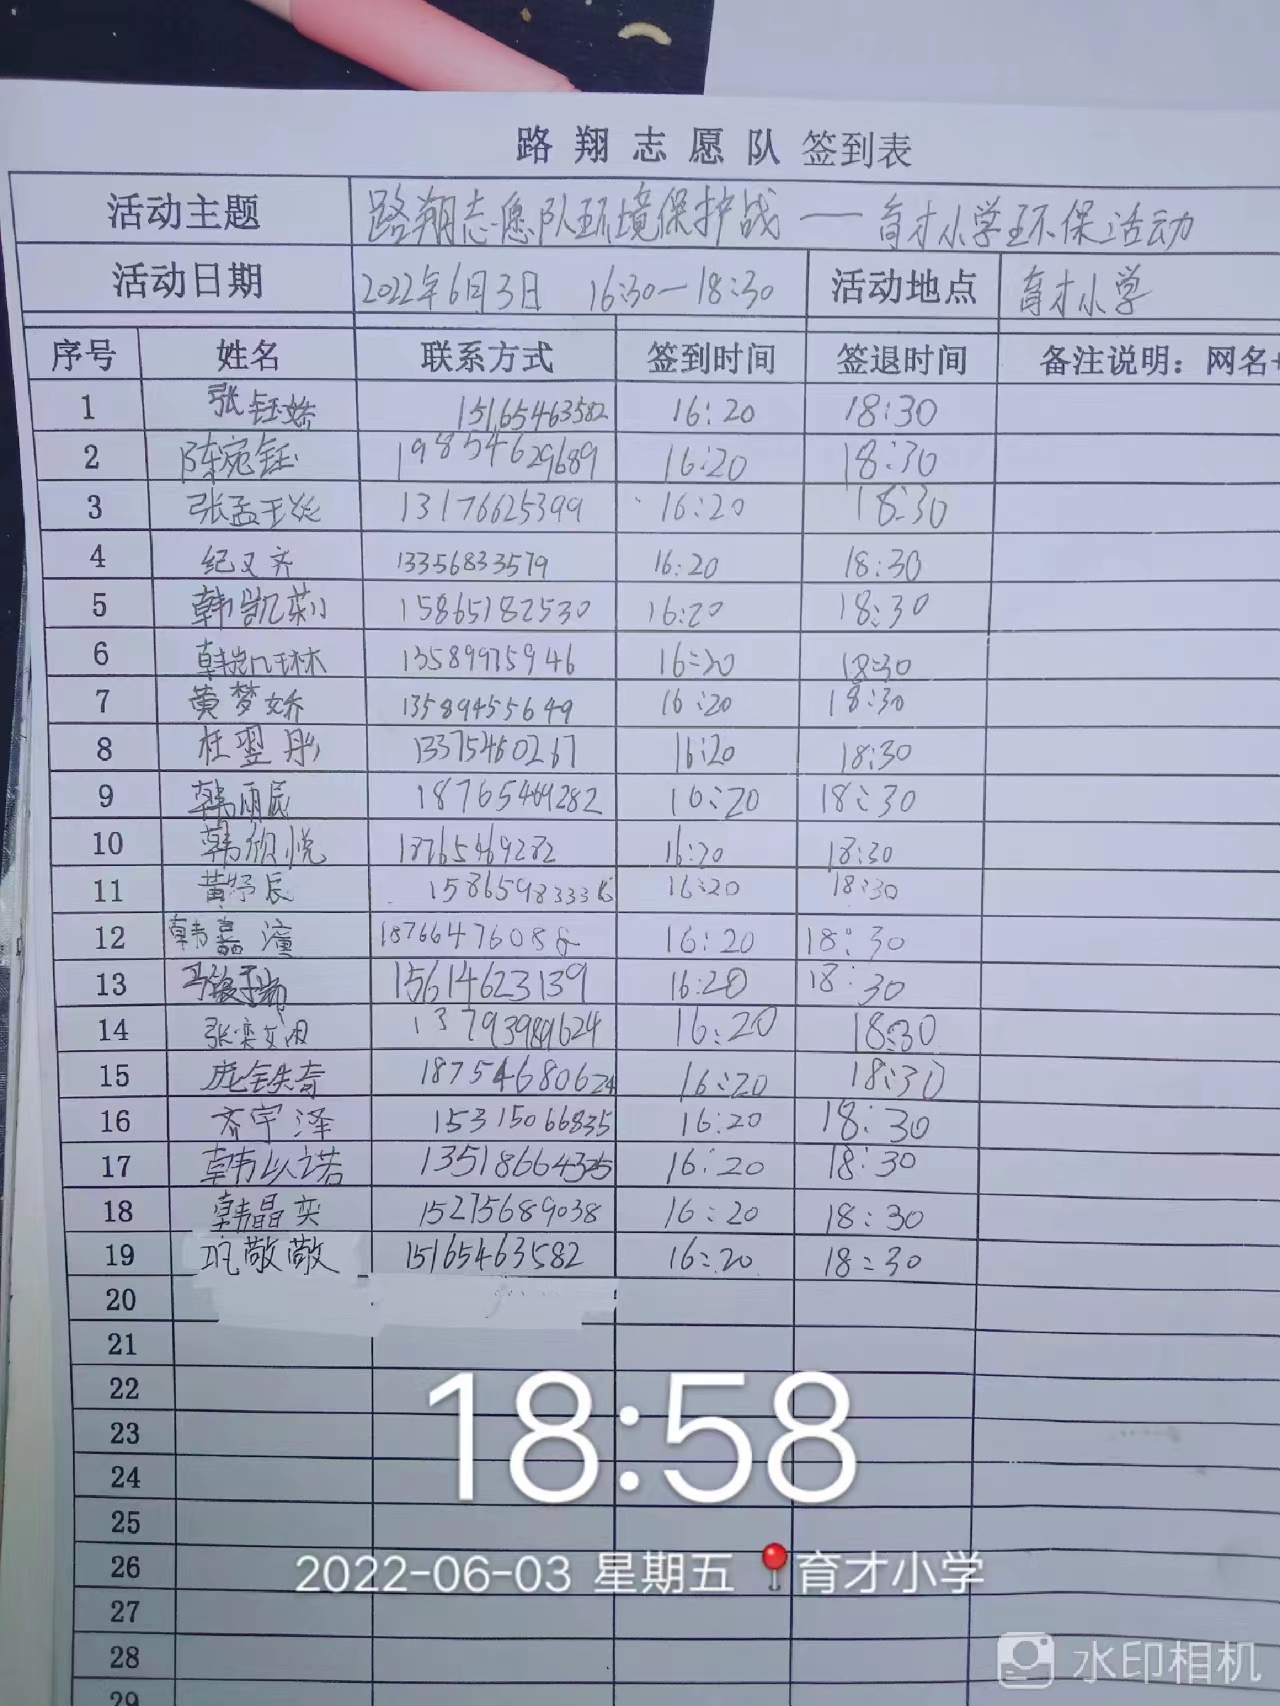 路翔志愿队 签到表
活动主题 路翔志愿队环境保护战 —— 育才小学环保活动
活动日期 2022年6月3日 16:30—18:30 活动地点 育才小学
序号 姓名 联系方式 签到时间 签退时间 备注说明：网名+
1 张钰娇 15165463582 16:20 18:30
2 陈宛钰 19854629689 16:20 18:30
3 张孟 13176625399 16:20 18:30
4 纪又齐 13356833579 16:20 18:30
5 韩凯莉 15865182530 16:20 18:30
6 韩凯琳 13589975946 16:20 18:30
7 黄梦娇 13589455649 16:20 18:30
8 杜翌彤 13375460267 16:20 18:30
9 韩雨辰 18765469282 16:20 18:30
10 韩欣悦 18765469282 16:20 18:30
11 黄馜辰 16:20 18:30
12 韩嘉潼 18766476088 16:20 18:30
13 15614623139 16:20 18:30
14 张奕 16:20 18:30
15 庞铁奇 18754680624 16:20 18:30
16 齐宇泽 15315066835 16:20 18:30
17 韩以诺 13518664325 16:20 18:30
18 韩晶奕 15275689038 16:20 18:30
19 巩敬敬 15165463582 16:20 18:30
20
21
22
23
24
25
26
27
28
29
18:58
2022-06-03 星期五 育才小学
水印相机